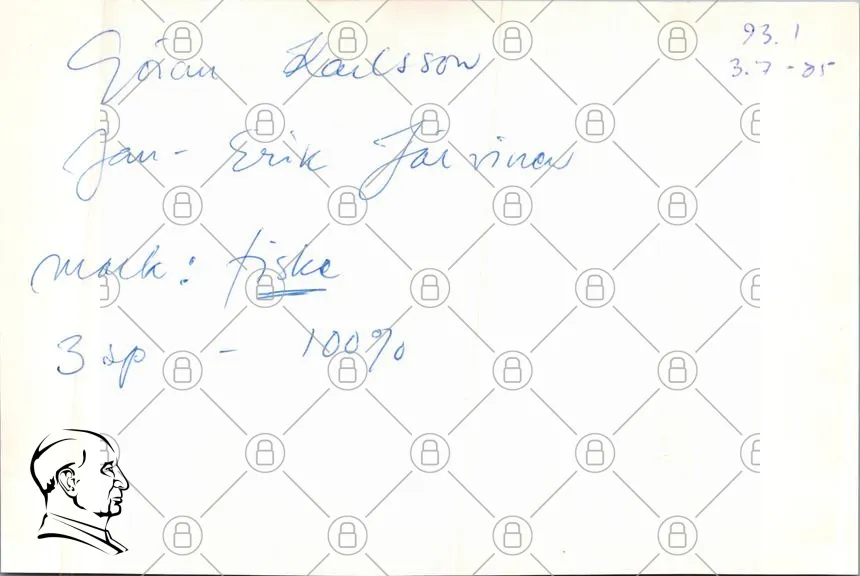 93.1
3.7-85
Göran Karlsson
Jan-Erik Järvinen
mark: fiske
3 sp - 100%